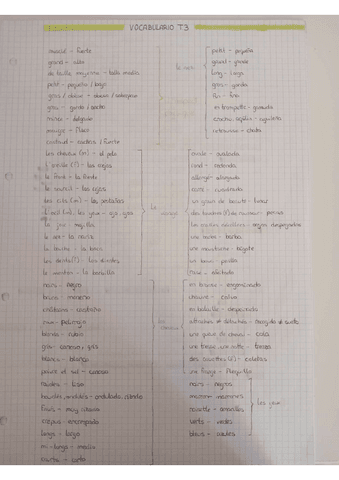 VOCABULARIO T3
musclé - fuerte
grand - alto
de taille moyenne - talla media
petit - pequeño / bajo
gros / obèse - obeso /
gros - gordo /
mince - delgado
maigre - flaco
costaud - / fuerte
les cheveux (m) - el pelo
l'oreille (f) - las orejas
le front - la frente
le sourcil - las cejas
les cils (m) - las pestañas
L'œil (m), les yeux - ojo, ojos
la joue - mejilla
le nez - la nariz
la bouche - la boca
les dents (f) - los dientes
le menton - la barbilla
noirs - negro
bruns - moreno
châtains - castaño
roux - pelirrojo
blonds - rubio
gris - canoso, gris
blancs - blanco
poivre et sel - canoso
raides - liso
bouclés, ondulés - ondulado, rizado
frisés - muy rizado
crépus - encrespado
longs - largo
mi-longs - medio
courts - corto
le nez
petit - pequeño
grand - grande
long - largo
gros - gordo
fin - fino
en trompette -
crochu, aquilin - aguileño
retroussé - chato
le visage
ovale - ovalada
rond - redonda
allongé - alargada
carré - cuadrada
un grain de beauté - lunar
des taches (f) de rousseur - pecas
les oreilles décollées - orejas despegadas
une barbe - barba
une moustache - bigote
un bouc - perilla
les cheveux
en brosse - engominado
chauve - calvo
en bataille - despeinado
attachés ≠ détachés - recogido ≠ suelto
une queue de cheval - cola
une tresse, une natte - trenza
des couettes (f) - coletas
une frange - flequillo
les yeux
noirs - negros
marron - marrones
noisette -
verts - verdes
bleus - azules